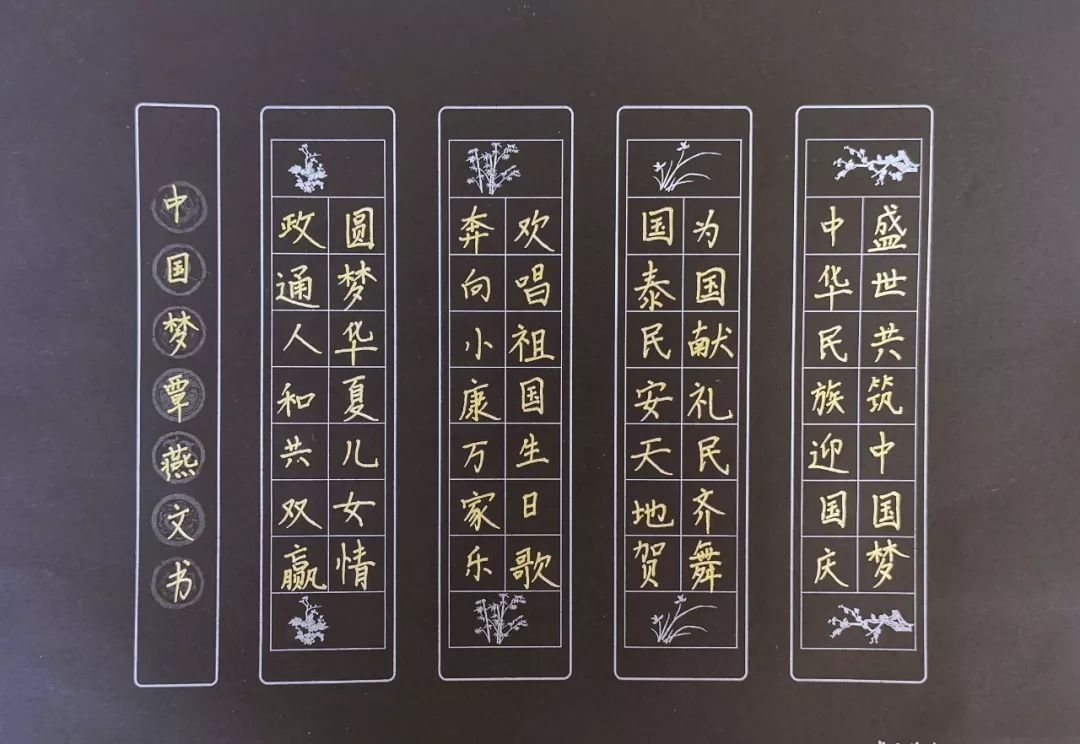 盛世共筑中国梦
中华民族迎国庆
为国献礼民齐舞
国泰民安天地贺
欢唱祖国生日歌
奔向小康万家乐
圆梦华夏儿女情
政通人和共双赢
中国梦覃燕文书